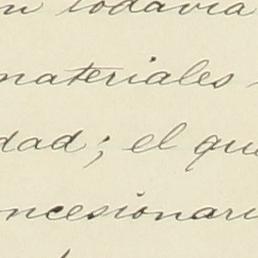 n todavia
materiales
dad; el que
ncesionari